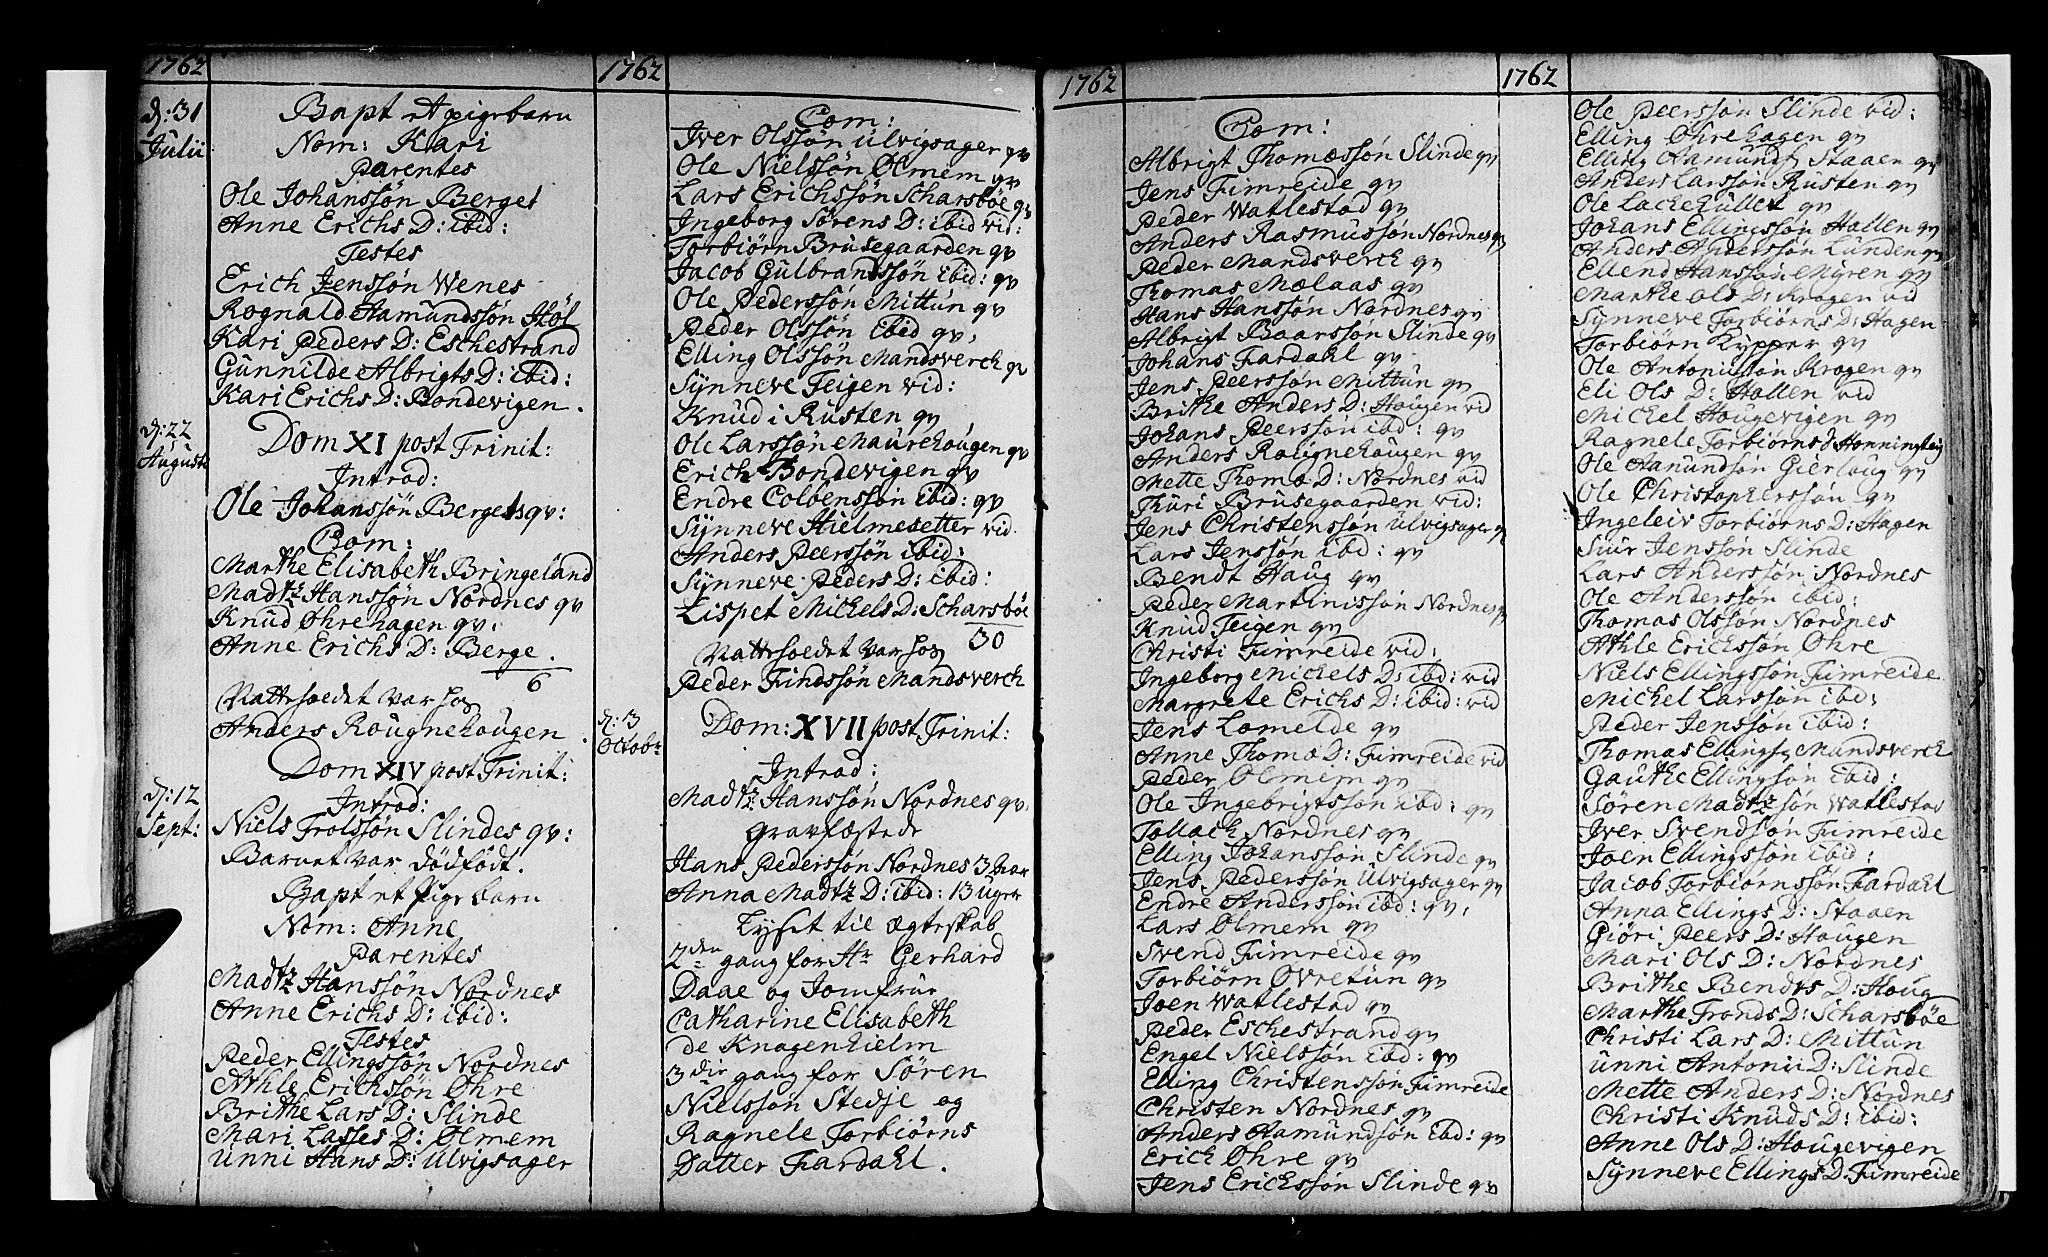 1762
d: 31
Julii
Bapt et pigebarn
Nom: Kari
Parentes
Ole Johanssøn Berget
Anne Erichs D: ibid:
Testes
Erich Jenssøn Wenes
Rognald Aamundssøn Støl
Kari Peders D: Eschestrand
Gunnilde Albrigts D: ibid:
Kari Erichs D: Bondevigen.
d: 22
Augusti
Dom XI post Trinit:
Introd:
Ole Johanssøn Bergets qv:
Com:
Marthe Elisabeth Bringeland
Madtz Hanssøn Nordnes qv
Knud Øhrehagen qv:
Anne Erichs D: Berge.
6
Nattsædet var hos
Anders Rougnehougen.
Dom XIV post Trinit:
d: 12
Sept:
Introd:
Niels Trolssøn Slindes qv:
Barnet var dödfödt.
Bapt et Pigebarn
Nom: Anne
Parentes
Madtz Hanssøn Nordnes
Anne Erichs D: ibid:
Testes
Peder Ellingssøn Nordnes
Athle Erickssøn Øhre
Brithe Lars D: Slinde
Mari Lasses D: Olmem
Unni Hans D: Ulvigsager
1762
Com:
Iver Olssøn Ulvigsager qv
Ole Nielssøn Olmem qv
Lars Erichssøn Scharsbøe qv
Ingeborg Sørens D: ibid vid:
Torbiørn Brusegaarden qv
Jacob Gulbrandssøn ibid: qv
Ole Pederssøn Mittun qv
Peder Olssøn ibid qv,
Elling Olssøn Mandsverch qv
Synneve Teigen vid:
Knud i Rusten qv
Ole Larssøn Maurehougen qv
Erich Bondevigen qv
Endre Colbenssøn ibid: qv
Synneve Hielmesetter vid.
Anders Peerssøn ibid:
Synneve Peders D: ibid:
Lispet Michels D: Scharsbøe
30
Nattsædet var hos
Peder Findssøn Mandsverch
d: 3
Octobr
Dom: XVII post Trinit:
Introd:
Madtz Hanssøn Nordnes qv.
Gravfæstede
Hans Pederssøn Nordnes 3 Aar
Anna Madtz D: ibid: 13 Uger
Lyst til Ægteskab
2den gang for Hr Gerhard
Daae og Jomfrue
Catharine Elisabeth
de Knagenhielm
3die gang for Søren
Nielssøn Stedje og
Ragnele Torbiørns
Datter Fardahl.
1762
Com:
Albrigt Thomæssøn Slinde qv
Jens Fimreide qv
Peder Watlestad qv
Anders Rasmussøn Nordnes qv
Peder Mandsverch qv
Thomas Mælaas qv
Hans Hanssøn Nordnes qv
Albrigt Baarssøn Slinde qv
Johans Fardahl qv
Jens Peerssøn Mittun qv
Brithe Anders D: Hougen vid
Johans Peerssøn ibid: qv
Anders Rougnehougen qv
Mette Thomæ D: Nordnes vid
Thuri Brusegaarden vid:
Jens Christenssøn Ulvigsager qv
Lars Jenssøn ibid: qv
Bendt Haug qv
Peder Martinissøn Nordnes qv
Knud Teigen qv
Christi Fimreide vid:
Ingeborg Michels D: ibid: vid
Margrete Erichs D: ibid: vid
Jens Lomeide qv
Anne Thomæ D: Fimreide vid
Peder Olmem qv
Ole Ingebrigtssøn ibid: qv
Tollach Nordnes qv
Elling Johanssøn Slinde qv
Jens Pederssøn Ulvigsager qv
Endre Anderssøn ibid: qv:
Lars Olmem qv
Svend Fimreide qv
Torbiørn Ovretun qv
Joen Watlestad qv
Peder Eschestrand qv
Engel Nielssøn ibid: qv
Elling Christenssøn Fimreide
Christen Nordnes qv
Anders Aamundssøn ibd: qv
Erich Øhre qv
Jens Erickssøn Slinde qv
1762
Ole Peerssøn Slinde vid:
Elling Øhrehagen qv
Elling Aamunds Staaen qv
Anders Larssøn Rusten qv
Ole Lackehullet qv
Johans Ellingssøn Hallen qv
Anders Anderssøn Lunden qv
Ellend Hanssøn Myren qv
Marthe Ols D: Krogen vid
Synneve Torbiørns D: Hagen
Torbiørn Kypper qv
Ole Antonissøn Krogen qv
Eli Ols D: Hallen vid
Michel Hougevigen qv
Ragnele Torbiørns d Hønningteig
Ole Aamundsøn Gierloug qv
Ole Christopherssøn qv
Ingeleiv Torbiørns D: Hagen
Siur Jenssøn Slinde
Lars Anderssøn Nordnes
Ole Anderssøn ibid:
Thomas Olssøn Nordnes
Athle Erickssøn Øhre
Niels Ellingssøn Fimreide
Michel Larssøn ibid:
Peder Jenssøn ibid:
Thomas Ellings Mandsverch
Gauthe Ellingssøn ibid:
Søren Madtz søn Watlestad
Iver Svendsøn Fimreide
Joen Ellingssøn ibid:
Jacob Torbiørnssøn Fardahl
Anna Ellings D: Staaen
Giöri Peers D: Hougen
Mari Ols D: Nordnes
Brithe Bendts D: Houg
Marthe Tronds D: Scharsbøe
Christi Lars D: Mittun
Unni Antonii D: Slinde
Mette Anders D: Nordnes
Christi Knuds D: ibid:
Anne Ols D: Hougevigen
Synneve Ellings D: Fimreide